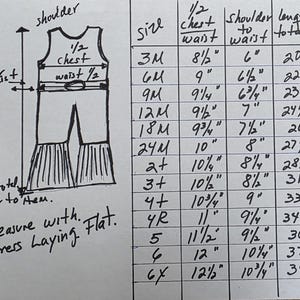 shoulder
1/2
chest
waist 1/2
to Hem.
Measure with
Dress Laying Flat.
size 1/2 chest waist shoulder to waist
3M 8½" 6" 20
6M 9" 6½ 22
9M 9¼" 6¾" 23
12M 9½" 7" 24
18M 9¾" 7½" 2
24M 10" 8" 27
2t 10¼" 8¼" 28
3t 10½" 8½" 31
4t 10¾" 9" 33
4R 11" 9¼" 34
5 11½" 9½" 3
6 12" 10¼" 3
6X 12½" 10¾" 3